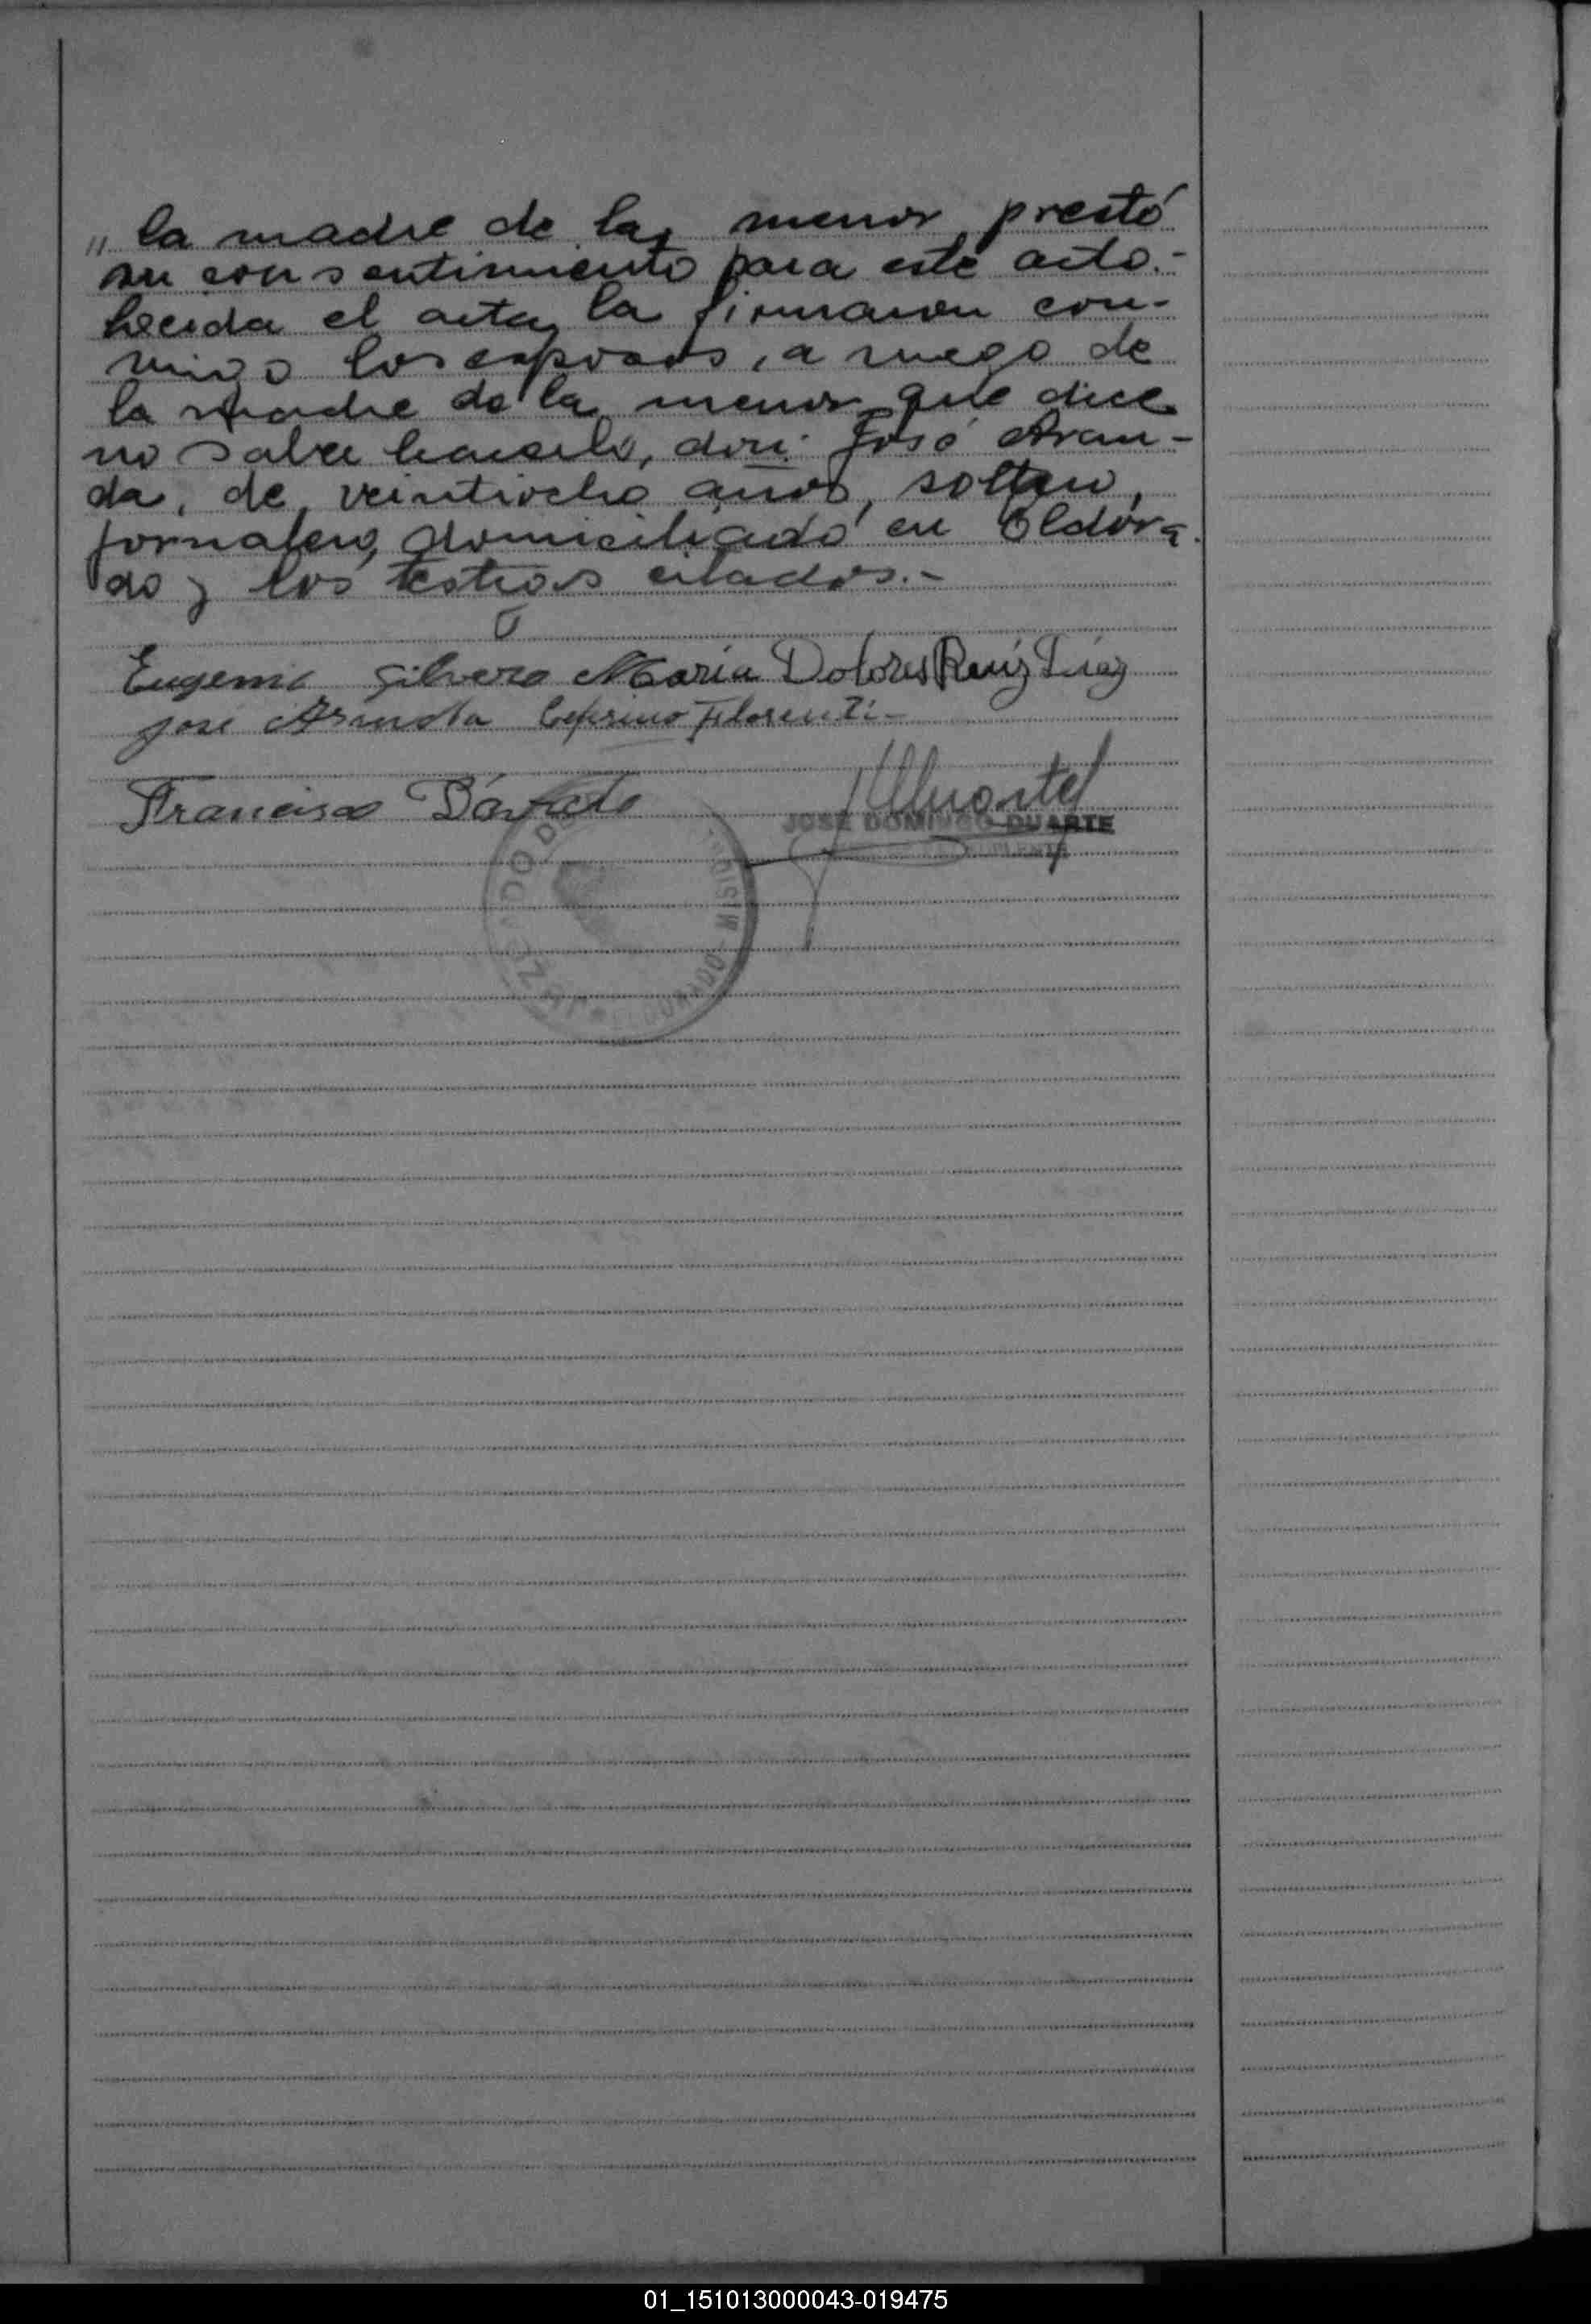 " la madre de la menor prestó
su consentimiento para este acto.-
Leeida el acta, la firmaron con-
migo los esposos, a ruego de
la madre de la menor que dice
no saber hacerlo, don José Aran-
da, de veintiocho años, soltero,
jornalero, domiciliado en Eldora-
do y los testigos citados.-
Eugenio Silvero María Dolores Ruíz Díaz
José Aranda Ceferino Florenti-
Francisco
JOSE DOMINGO DUARTE
SUPLENTE
JUZGADO DE
ELDORADO
01_151013000043-019475